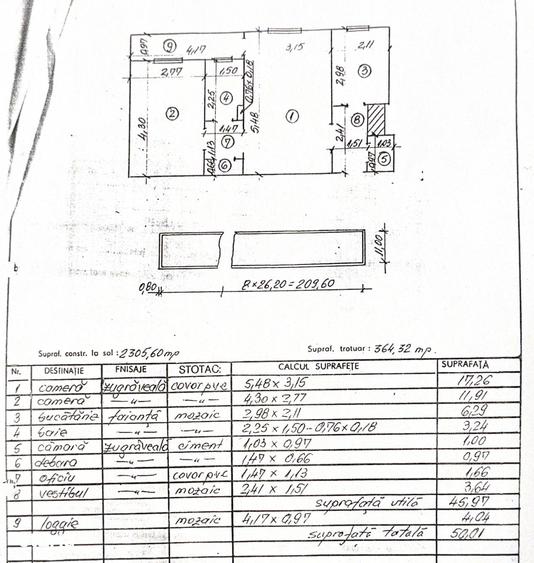 0,97 ⑨ 4,17 3,15 2,11
2,77 1,50 2,98 ③
② 2,25 ④ 0,76x0,18 5,48 ①
4,30 1,47 2,41 ⑧
⑦ 1,51 1,03
0,66 1,13 ⑥ 0,97 ⑤
11,00
0,80 8 x 26,20 = 209,60
Supraf. constr. la sol: 2305,60 mp Supraf. trotuar: 364,32 mp.
Nr. DESTINAȚIE FNISAJE STOTAC: CALCUL SUPRAFEȚE SUPRAFAȚĂ
1 cameră zugrăveală covor pvc 5,48 x 3,15 17,26
2 cameră —"— —"— 4,30 x 2,77 11,91
3 bucătărie faianță mozaic 2,98 x 2,11 6,29
4 baie —"— —"— 2,25 x 1,50 - 0,76 x 0,18 3,24
5 cămară zugrăveală ciment 1,03 x 0,97 1,00
6 debara —"— —"— 1,47 x 0,66 0,97
7 oficiu —"— covor pvc 1,47 x 1,13 1,66
8 vestibul —"— mozaic 2,41 x 1,51 3,64
suprafață utilă 45,97
9 loggie mozaic 4,17 x 0,97 4,04
suprafață totală 50,01